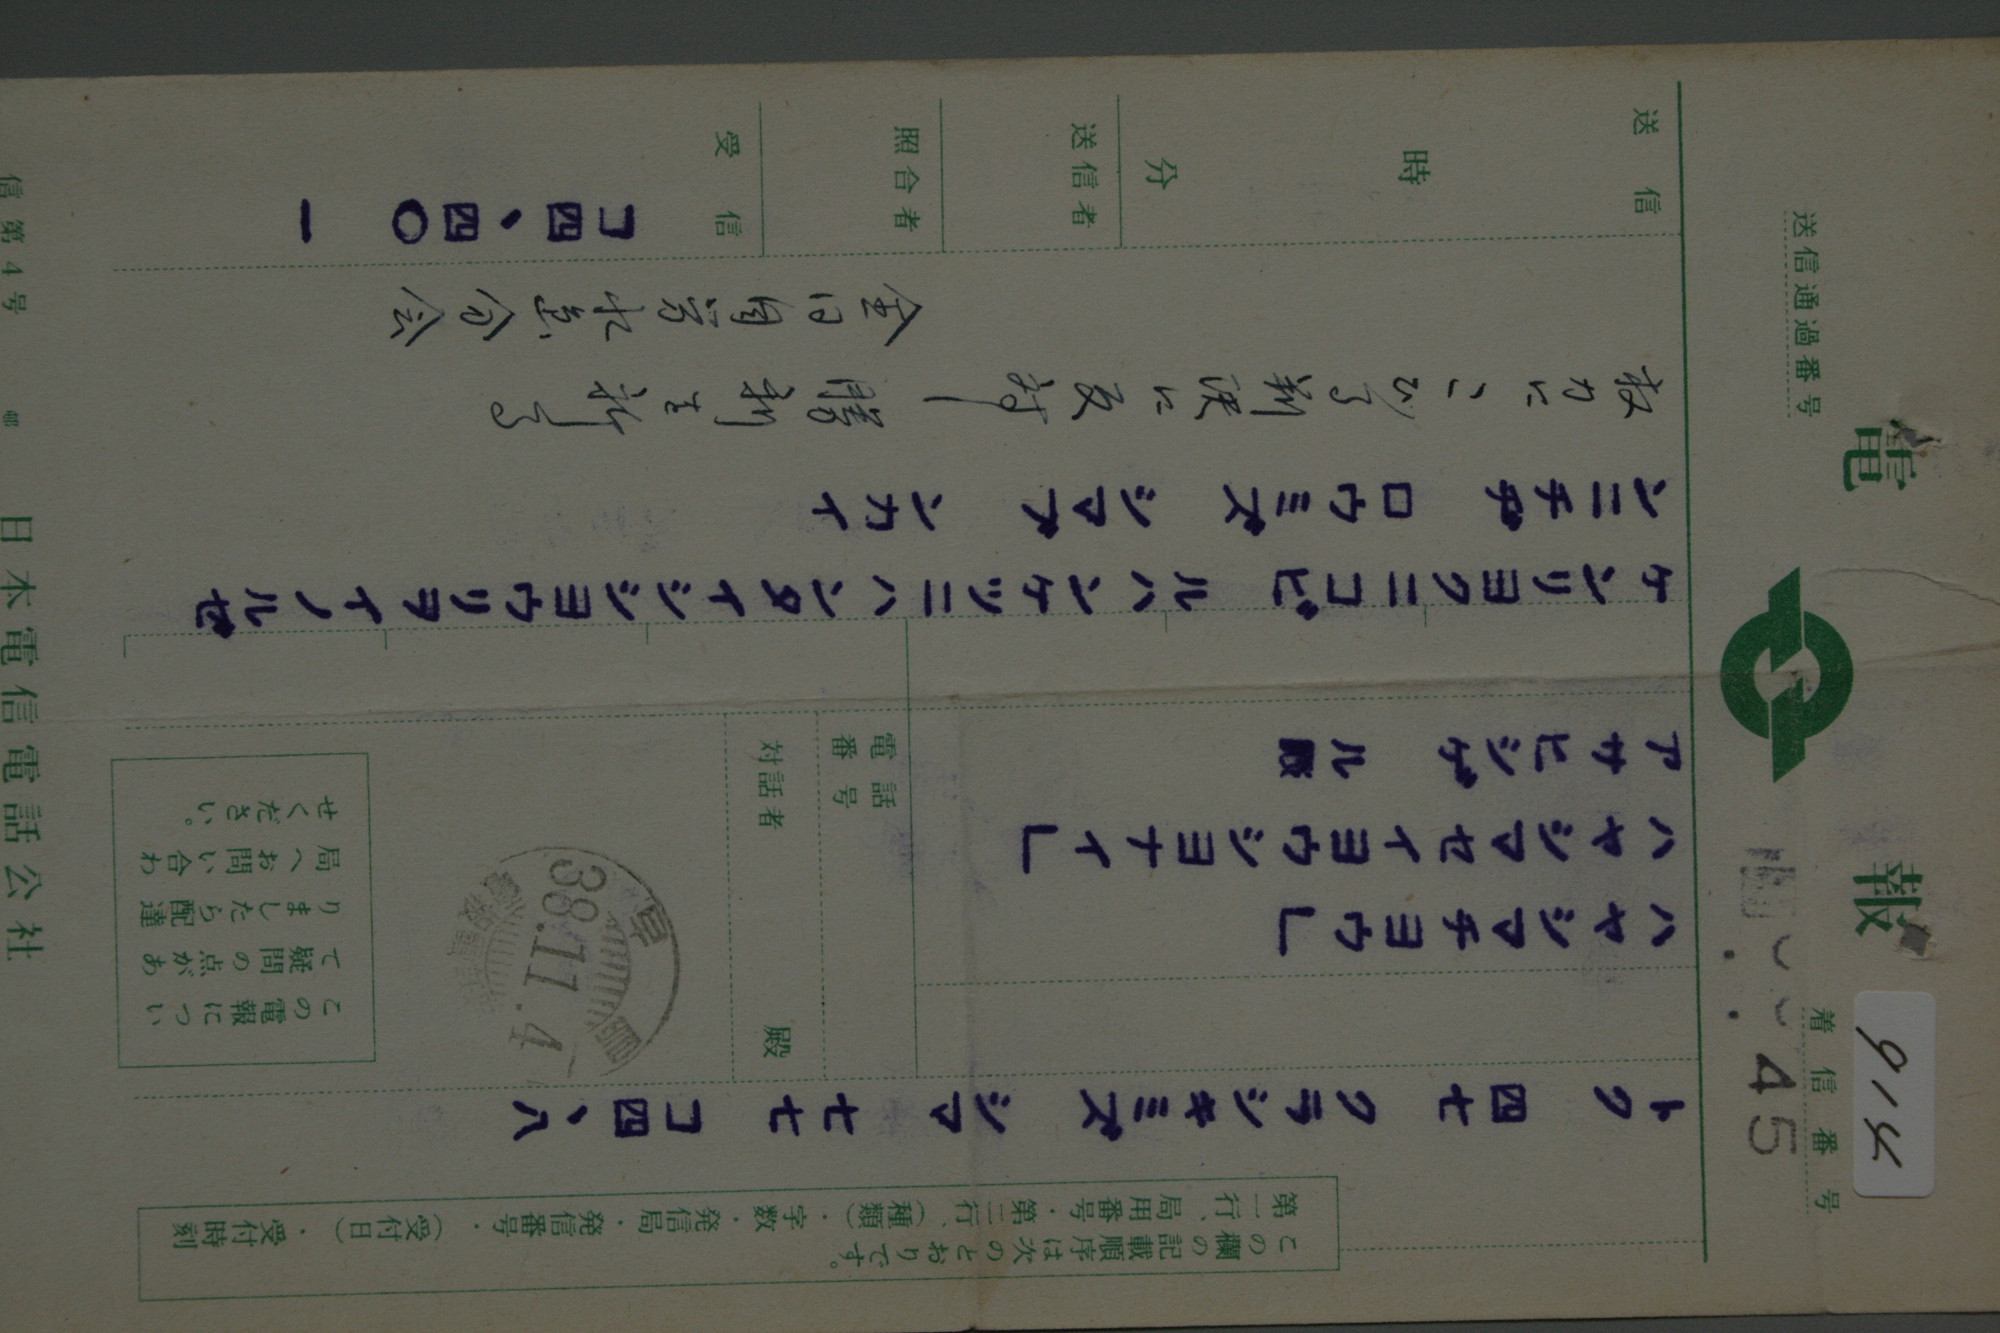 電報
送信通過番号
着信番号
45
914
この欄の記載順序は次のとおりです。
第一行、局用番号・第二行、(種類)・字数・発信局・発信番号・(受付日)・受付時刻
トク 四七 クラシキミズシマ 七七 コ四、八
ハヤシマチヨウ」
ハヤシマセイヨウシヨナイ」
アサヒシゲル殿
電話番号
対話者
殿
38.11.4
この電報につい
て疑問の点があ
りましたら配達
局へお問い合わ
せください。
ケンリヨクニコビルハンケツニハンタイシシヨウリヲイノルゼ
ンニチジロウミズシマブンカイ
权力にこびる判決に反対し勝利を祈る
全日自労水島分会
送信
時
分
送信者
照合者
受信
コ四、四〇 一
信第4号
日本電信電話公社